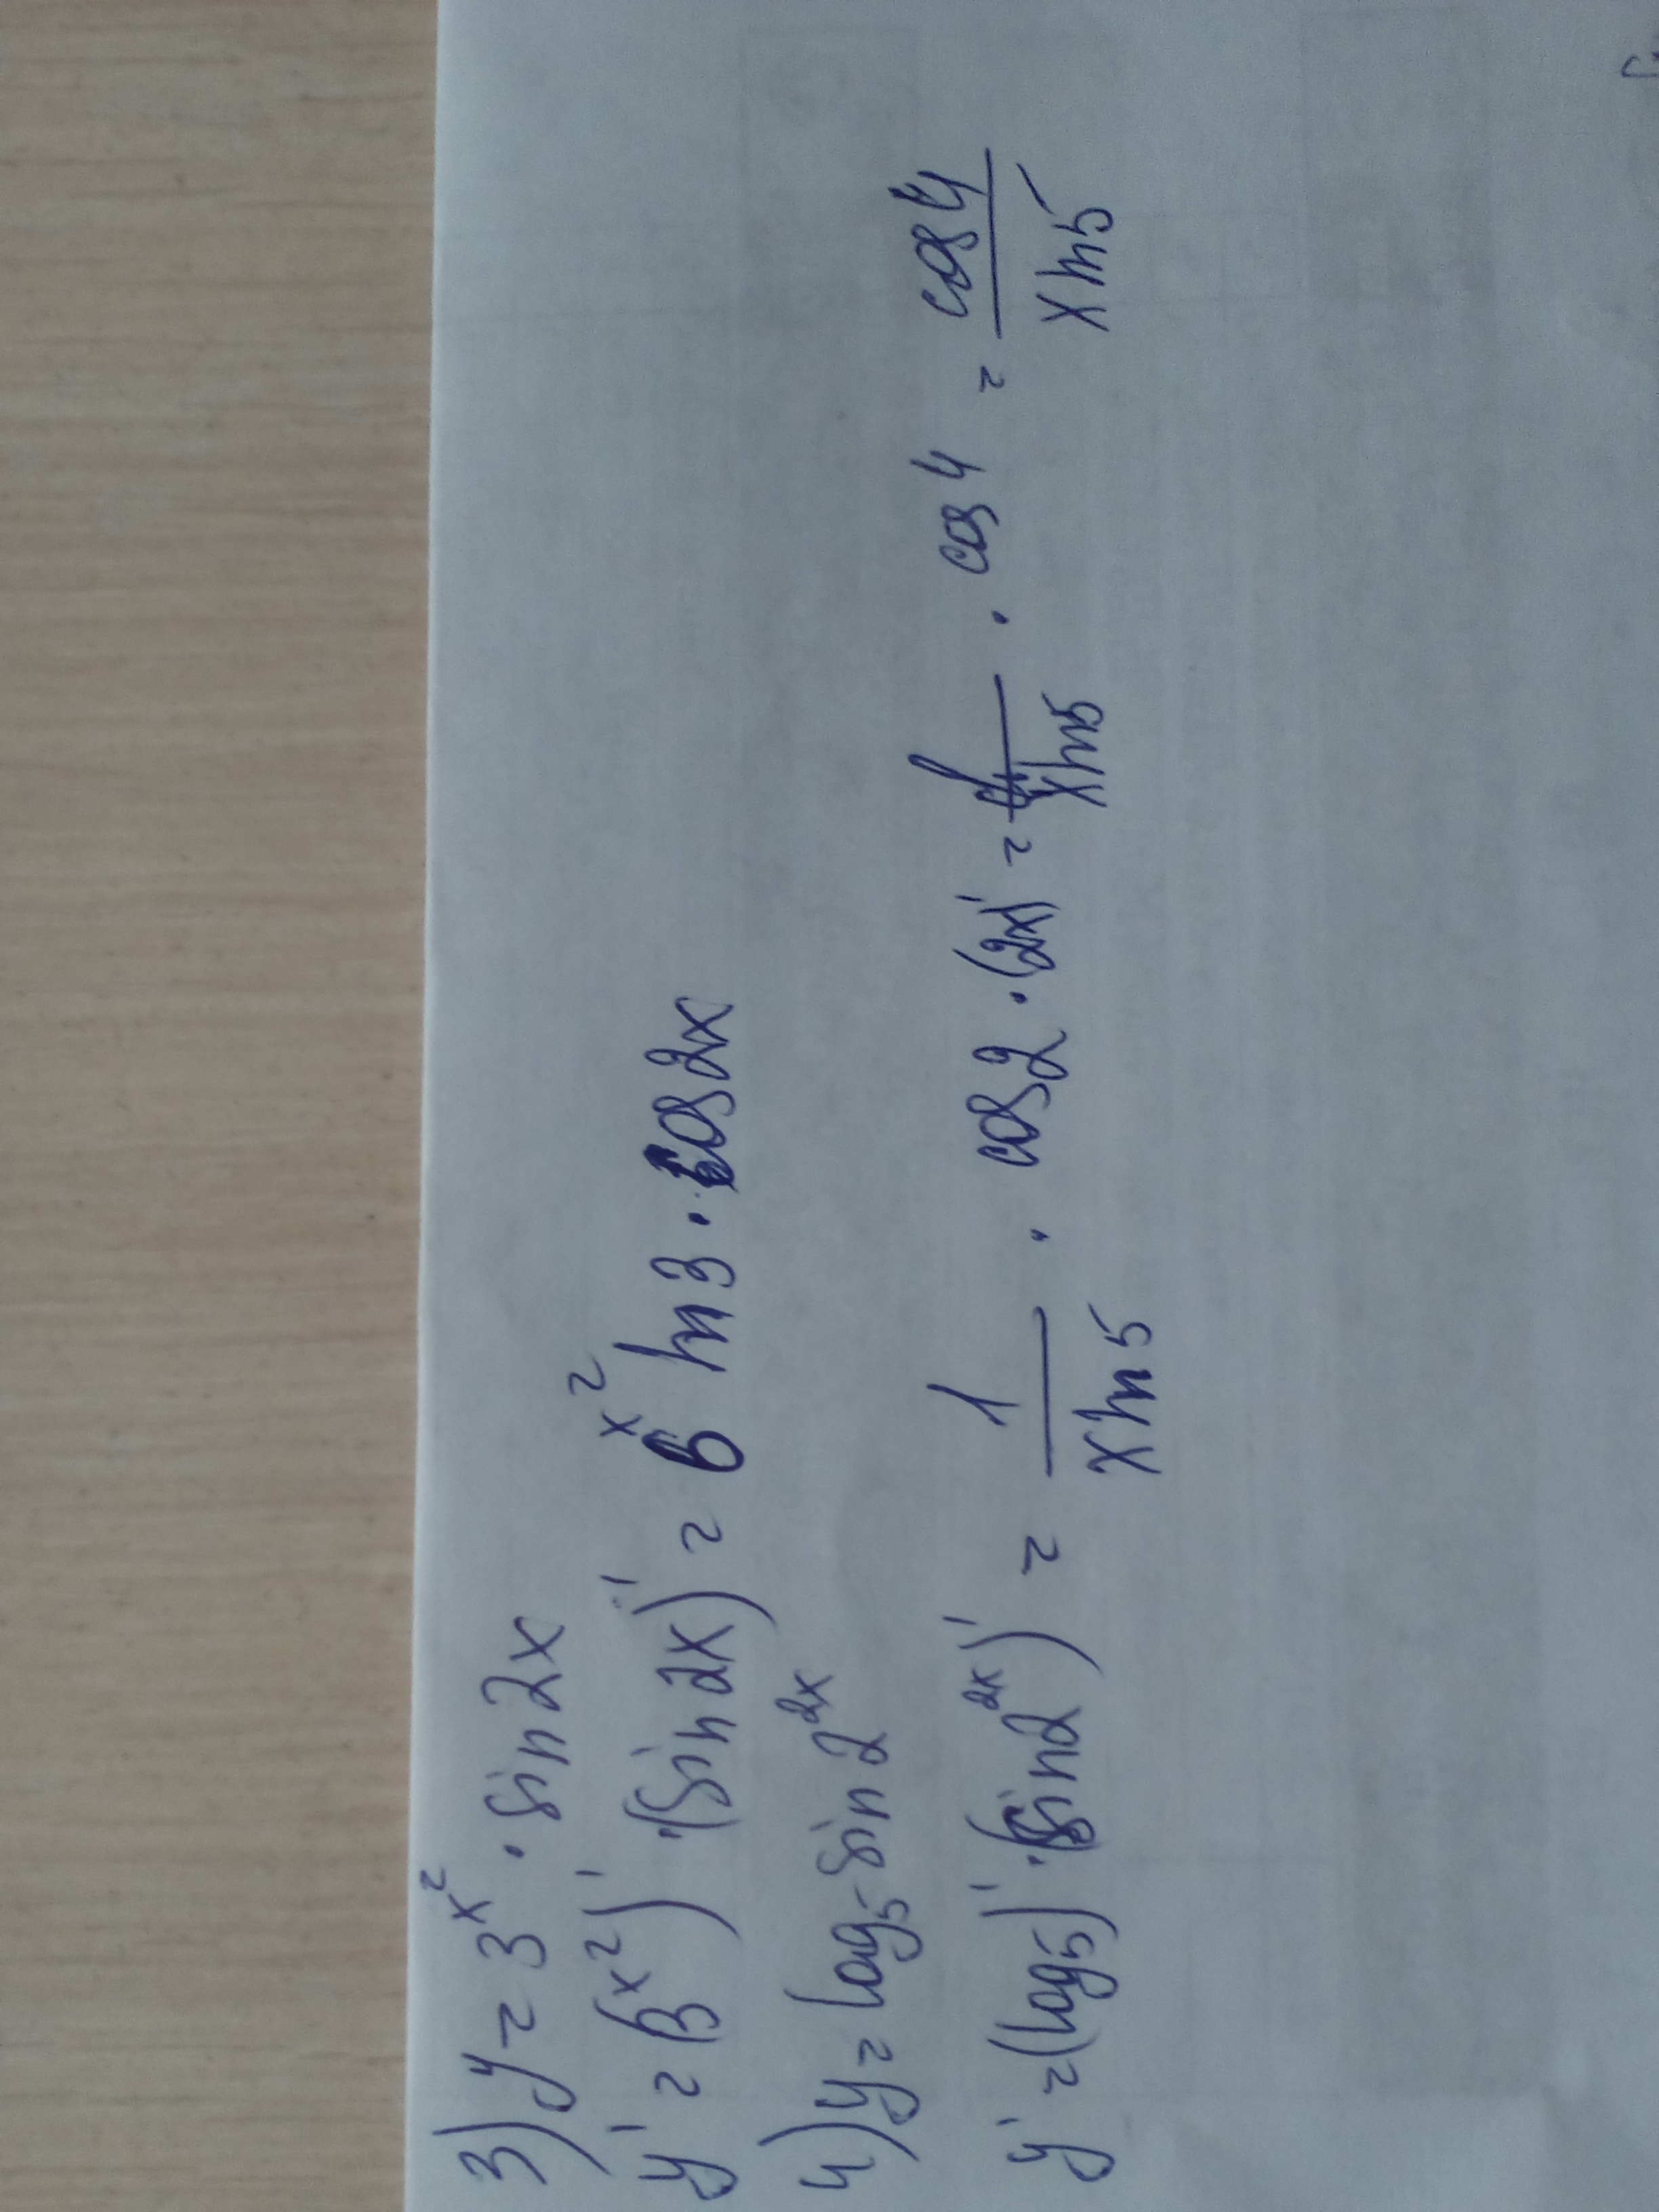 3) y = 3^{x^2} · sin2x
y' = (3^{x^2})' · (sin2x)' = 6^{x^2} ln3 · cos2x
4) y = log_5 sin2^{2x}
y' = (log_5)' · (sin2^{2x})' = \frac{1}{x ln5} · cos2 · (2x)' = \frac{1}{x ln5} · cos4 = \frac{cos4}{x ln5}